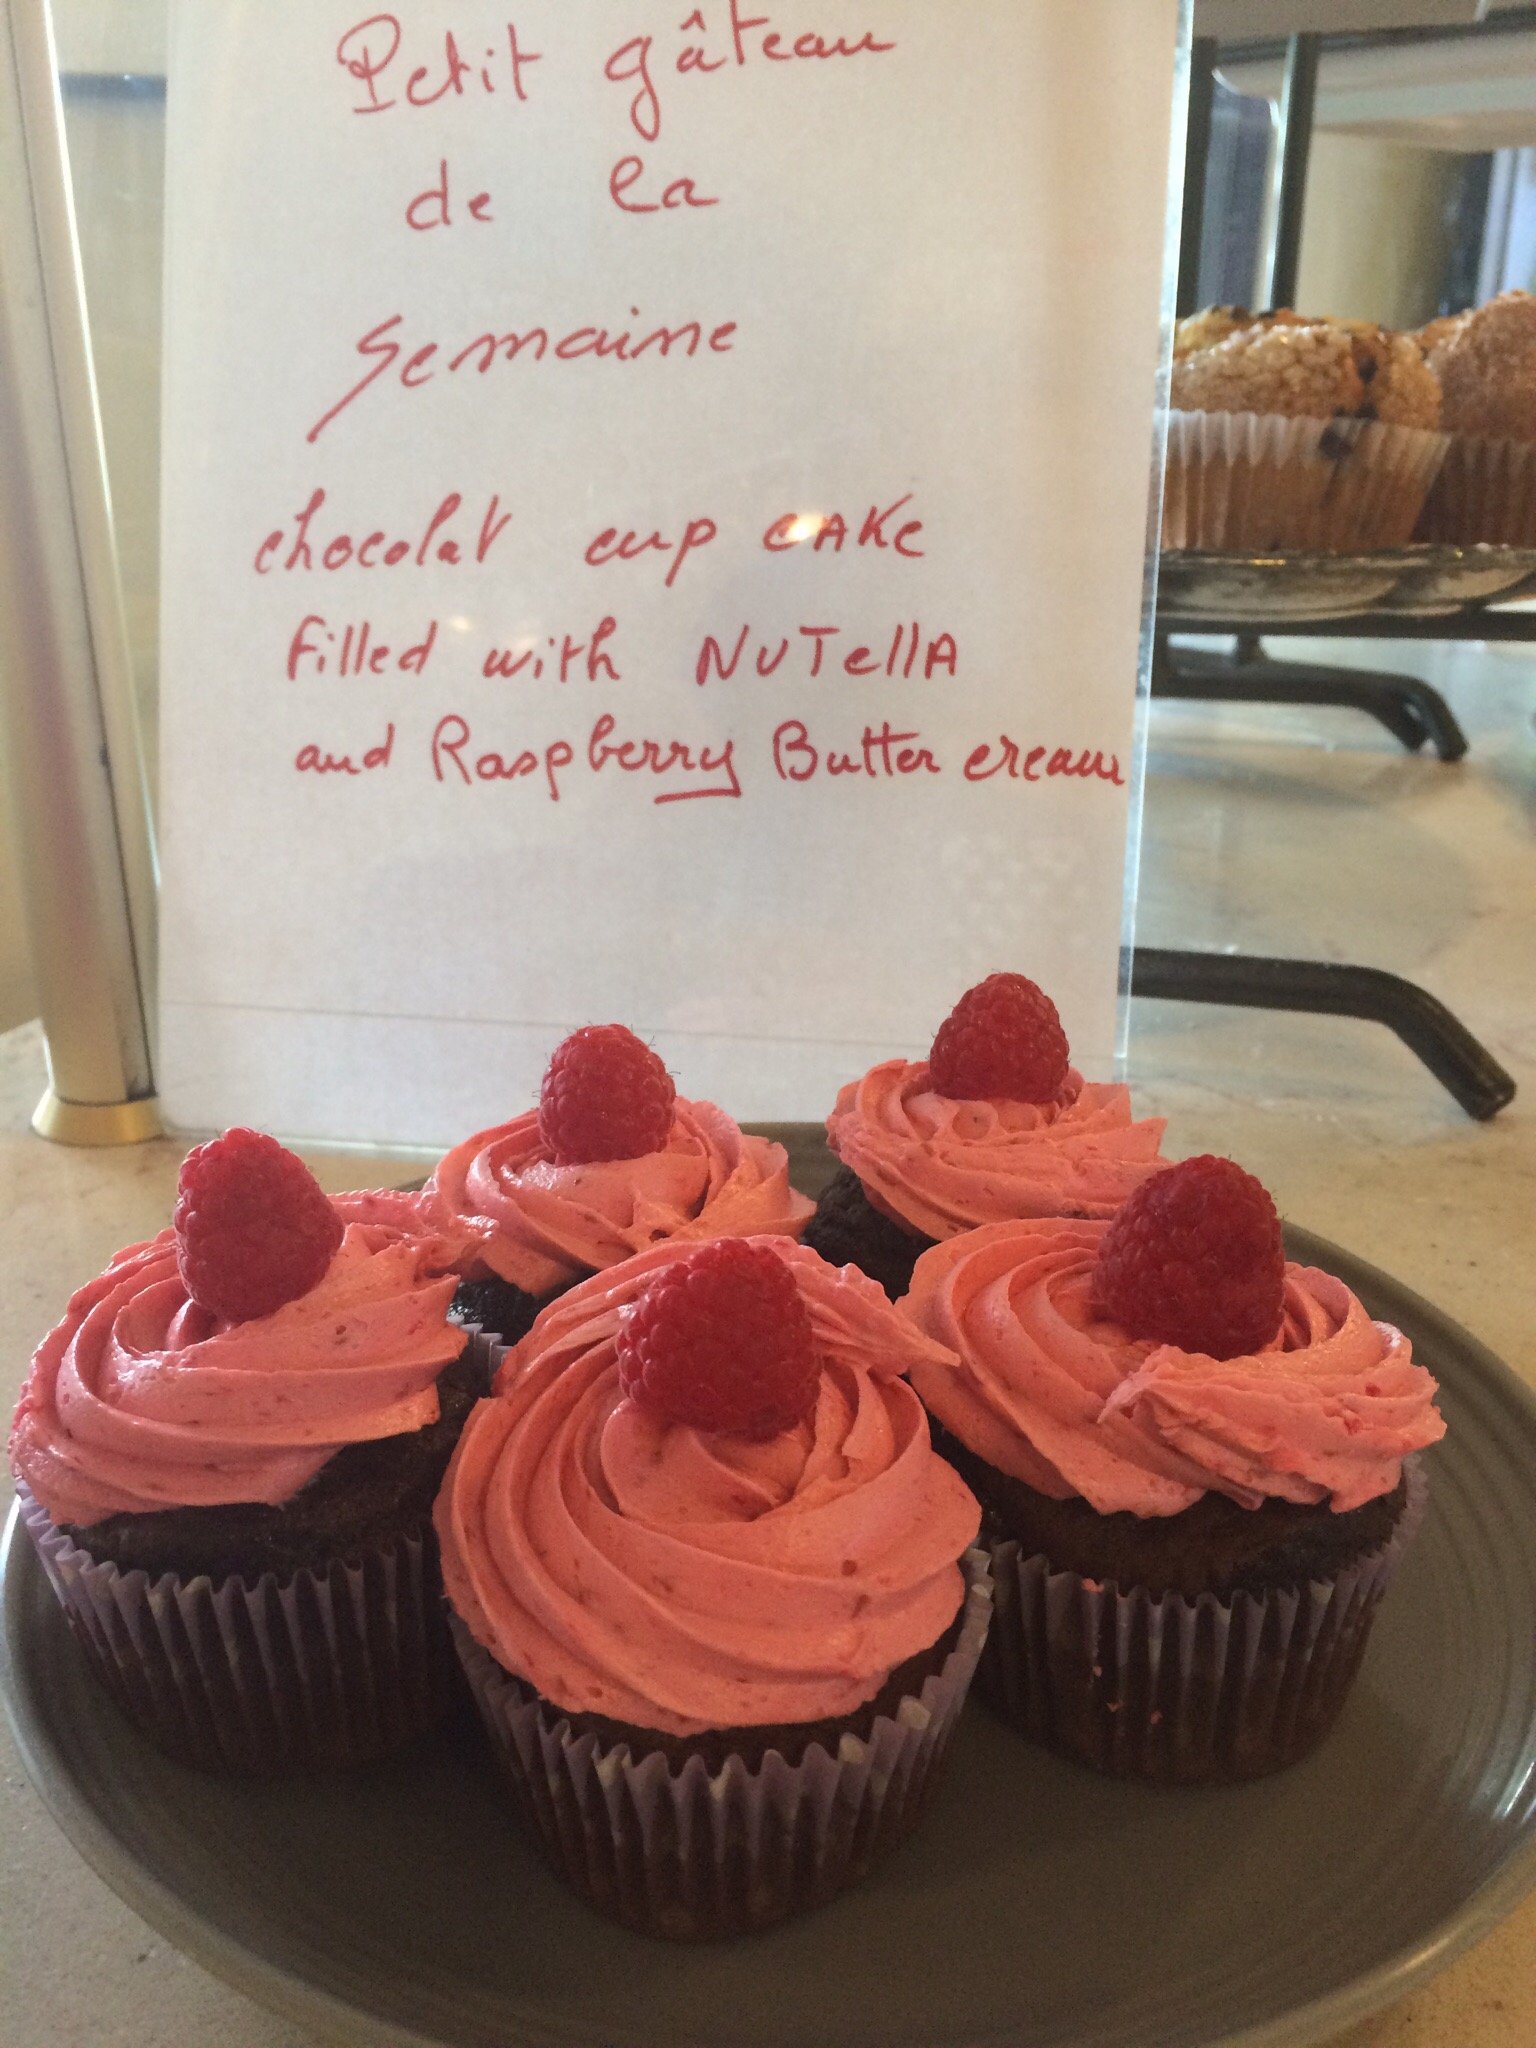 Petit gâteau
de la
semaine
chocolat cup cAKe
filled with NuTellA
and Raspberry Butter cream